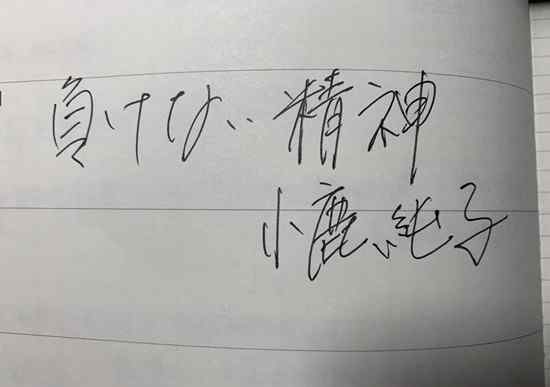 負けない精神
小鹿純子